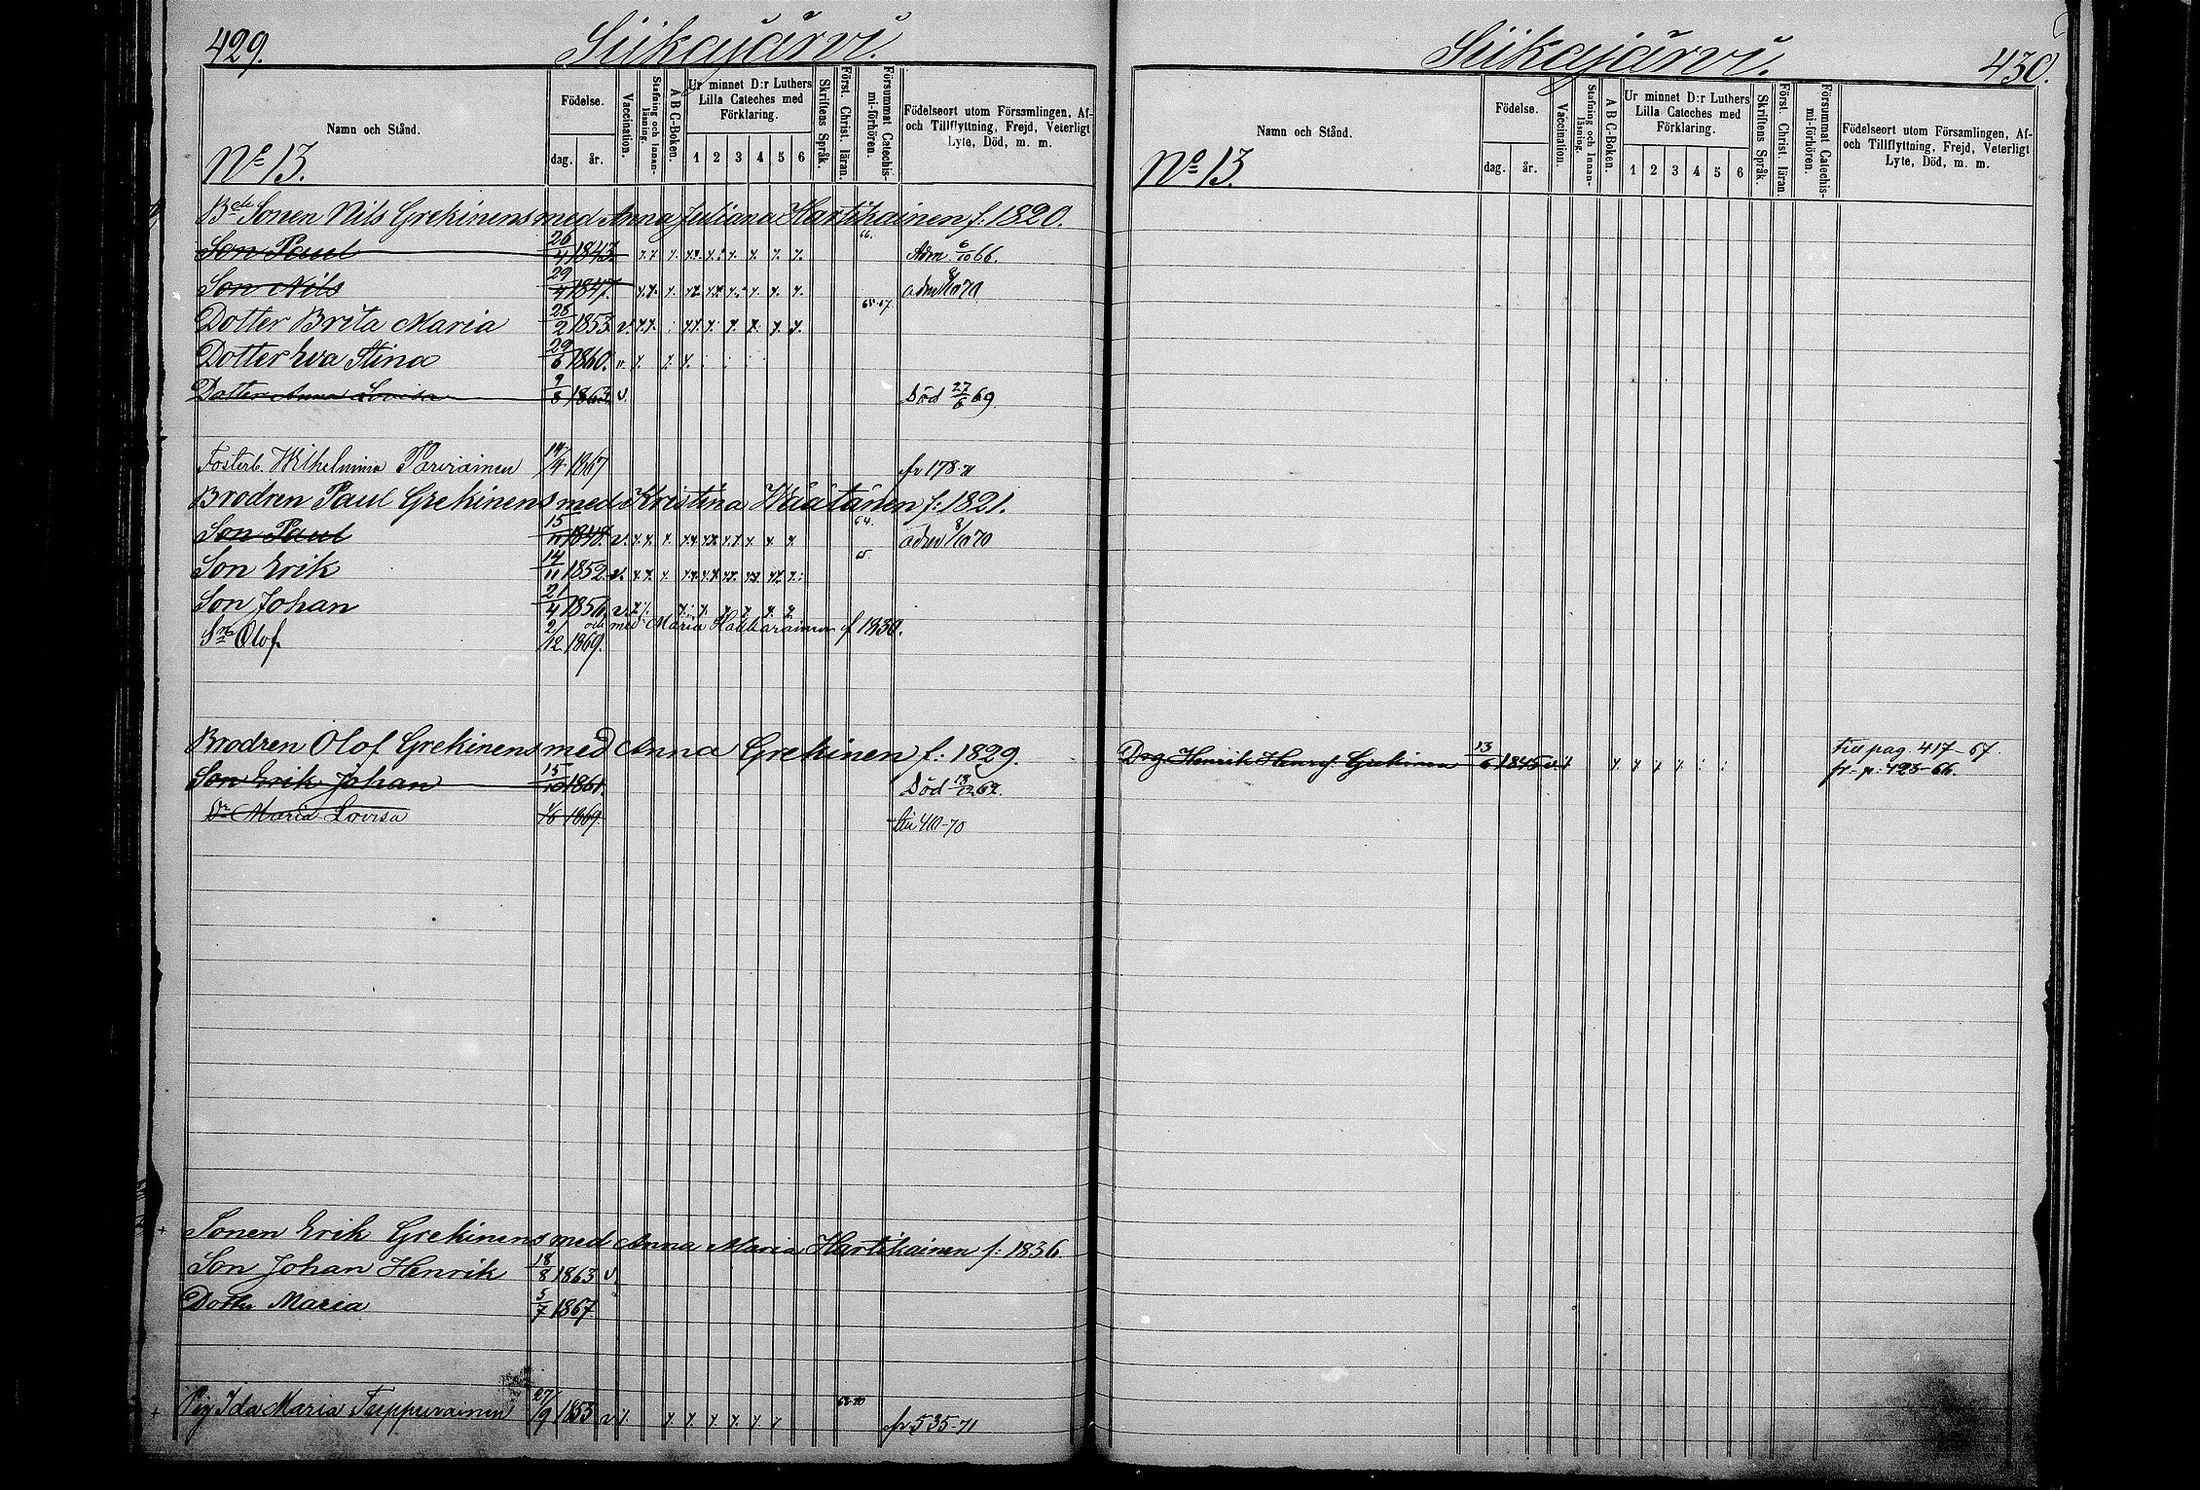 429.
Siikajärvi.
Namn och Stånd.
Födelse.
dag. år.
Vaccination.
Stafning och Innanläsning.
A B C-Boken.
Ur minnet D:r Luthers Lilla Cateches med Förklaring.
1 2 3 4 5 6
Skriftens Språk.
Först. Christ. läran.
Försummat Catechismi-förhören.
Födelseort utom Församlingen, Af- och Tillflyttning, Frejd, Veterligt Lyte, Död, m. m.
No 13.
Bde Sonen Nils Grekinens med Anna Juliana Hartikainen f: 1820.
Son Paul 26/4 1843. 66. Adm 6/10 66.
Son Nils 29/4 1847. adm 8/10 70
Dotter Brita Maria 1853. v. 65-67.
Dotter Eva Stina 29/6 1860. v.
Dotter Anna Lovisa 9/8 1863. v. Död 27/6 69.
Fosterb. Wilhelmina Parviainen 1867 fr 178-71
Brodren Paul Grekinens med Kristina Väätänen f: 1821.
Son Paul 15/11 1848. v. 64. adm 8/10 70
Son Erik 14/11 1852. v.
Son Johan 21/4 1856. v.
och med Maria f 1830.
Sn Olof 2/12 1869.
Brodren Olof Grekinens med Anna Grekinen f: 1829.
Son Erik Johan 15/10 1861. Död 67.
Dr Maria Lovisa 1/6 1869. till 410-70
Sonen Erik Grekinens med Anna Maria Hartikainen f: 1836.
Son Johan Henrik 18/8 1863 v.
Dotter Maria 5/7 1867.
Pig Ida Maria 27/9 1853 v fr 535-71
Siikajärvi.
430.
Namn och Stånd.
Födelse.
dag. år.
Vaccination.
Stafning och Innanläsning.
A B C-Boken.
Ur minnet D:r Luthers Lilla Cateches med Förklaring.
1 2 3 4 5 6
Skriftens Språk.
Först. Christ. läran.
Försummat Catechismi-förhören.
Födelseort utom Församlingen, Af- och Tillflyttning, Frejd, Veterligt Lyte, Död, m. m.
No 13.
Drg. Henrik Grekinen 13/6 1845 v. till pag. 417-67.
fr-p: 423-66.